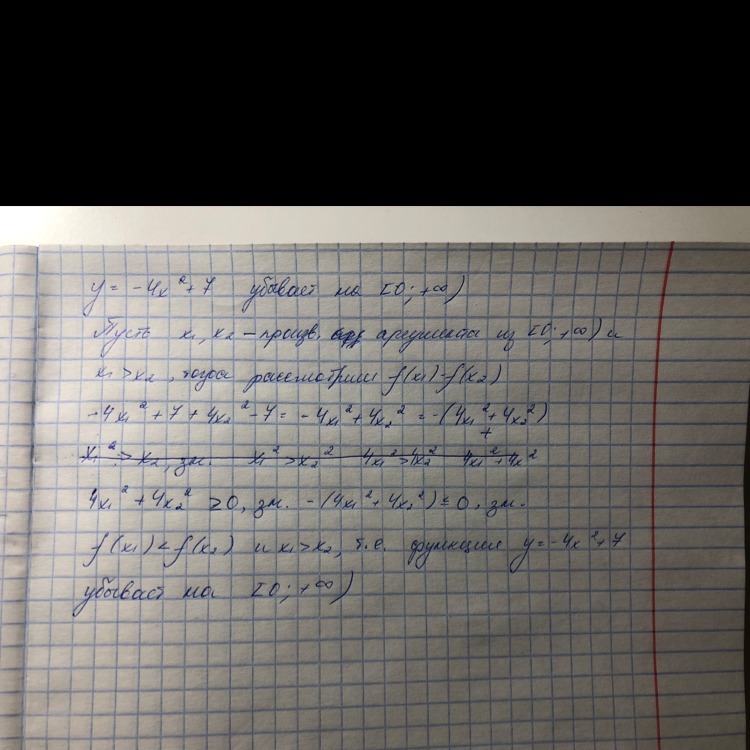 y = -4x² + 7 убывает на [0; +∞)
Пусть x₁, x₂ – произв. аргументы из [0; +∞) и
x₁ > x₂, тогда рассмотрим f(x₁) - f(x₂)
-4x₁² + 7 + 4x₂² - 7 = -4x₁² + 4x₂² = -(4x₁² + 4x₂²)
+
x₁² > x₂, зн. x₁² > x₂² 4x₁² > 4x₂² 4x₁² + 4x²
4x₁² + 4x₂² ≥ 0, зн. -(4x₁² + 4x₂²) ≤ 0, зн.
f(x₁) < f(x₂) и x₁ > x₂, т.е. функция y = -4x² + 7
убывает на [0; +∞)